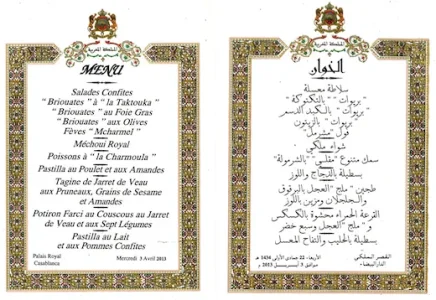 المملكة المغربية
MENU
Salades Confites
“ Briouates ” à “ la Taktouka ”
“ Briouates ” au Foie Gras
“ Briouates ” aux Olives
Fèves “ Mcharmel ”
Méchoui Royal
Poissons à “ la Charmoula ”
Pastilla au Poulet et aux Amandes
Tagine de Jarret de Veau
aux Pruneaux, Grains de Sesame
et Amandes
Potiron Farci au Couscous au Jarret
de Veau et aux Sept Légumes
Pastilla au Lait
et aux Pommes Confites
Palais Royal
Casablanca
Mercredi 3 Avril 2013
المملكة المغربية
سلاطة معسلة
" بريوات " " بالتكتوكة "
" بريوات " بالكبد الدسم
" بريوات " بالزيتون
فول " مشرمل "
شواء ملكي
سمك متنوع " مقلي " بالشرمولة "
بسطيلة بالدجاج واللوز
طجين " ملج " العجل بالبرقوق
والجلجلان ومزين باللوز
القرعة الحمراء محشوة بالكسكس
و " ملج " العجل وسبع خضر
بسطيلة بالحليب والتفاح المعسل
القصر الملكي
الدار البيضاء
الأربعاء 22 جمادى الأولى 1434 هـ
موافق 3 أبريل 2013 م